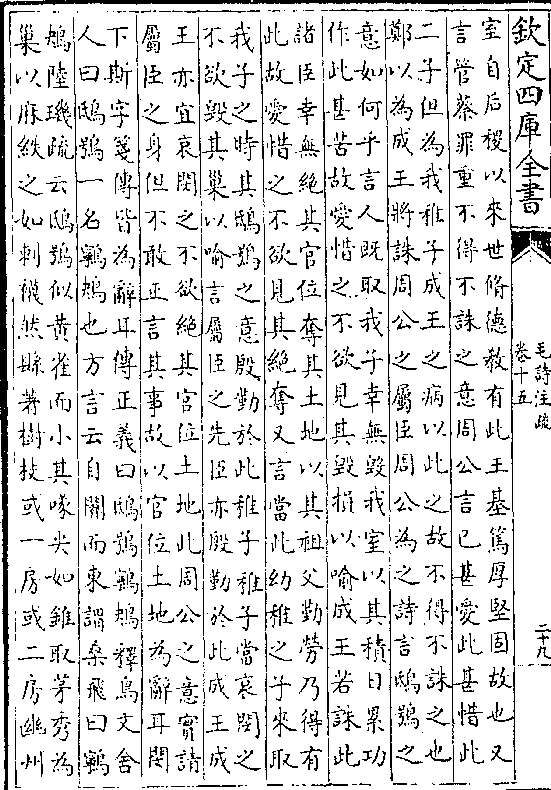 欽定四庫全書
毛詩注疏
卷十五
二十九
室自后稷以來世脩德教有此王基篤厚堅固故也又
言管蔡罪重不得不誅之意周公言已甚愛此甚惜此
二子但為我稚子成王之病以此之故不得不誅之也
鄭以為成王將誅周公之屬臣周公為之詩言鴟鴞之
意如何乎言人既取我子幸無毀我室以其積日累功
作此甚苦故愛惜之不欲見其毀損以喻成王若誅此
諸臣幸無絕其官位奪其土地以其祖父勤勞乃得有
此故愛惜之不欲見其絕奪又言當此幼稚之子來取
我子之時其鴟鴞之意殷勤於此稚子稚子當哀閔之
不欲毀其巢以喻言屬臣之先臣亦殷勤於此成王成
王亦宜哀閔之不欲絕其官位土地此周公之意實請
屬臣之身但不敢正言其事故以官位土地為辭耳閔
下斯字箋傳皆為辭耳傳正義曰鴟鴞鸋鴂釋鳥文舍
人曰鴟鴞一名鸋鴂也方言云自關而東謂桑飛曰鸋
鴂陸璣疏云鴟鴞似黃雀而小其喙尖如錐取茅秀為
巢以麻紩之如刺襪然縣著樹枝或一房或二房幽州